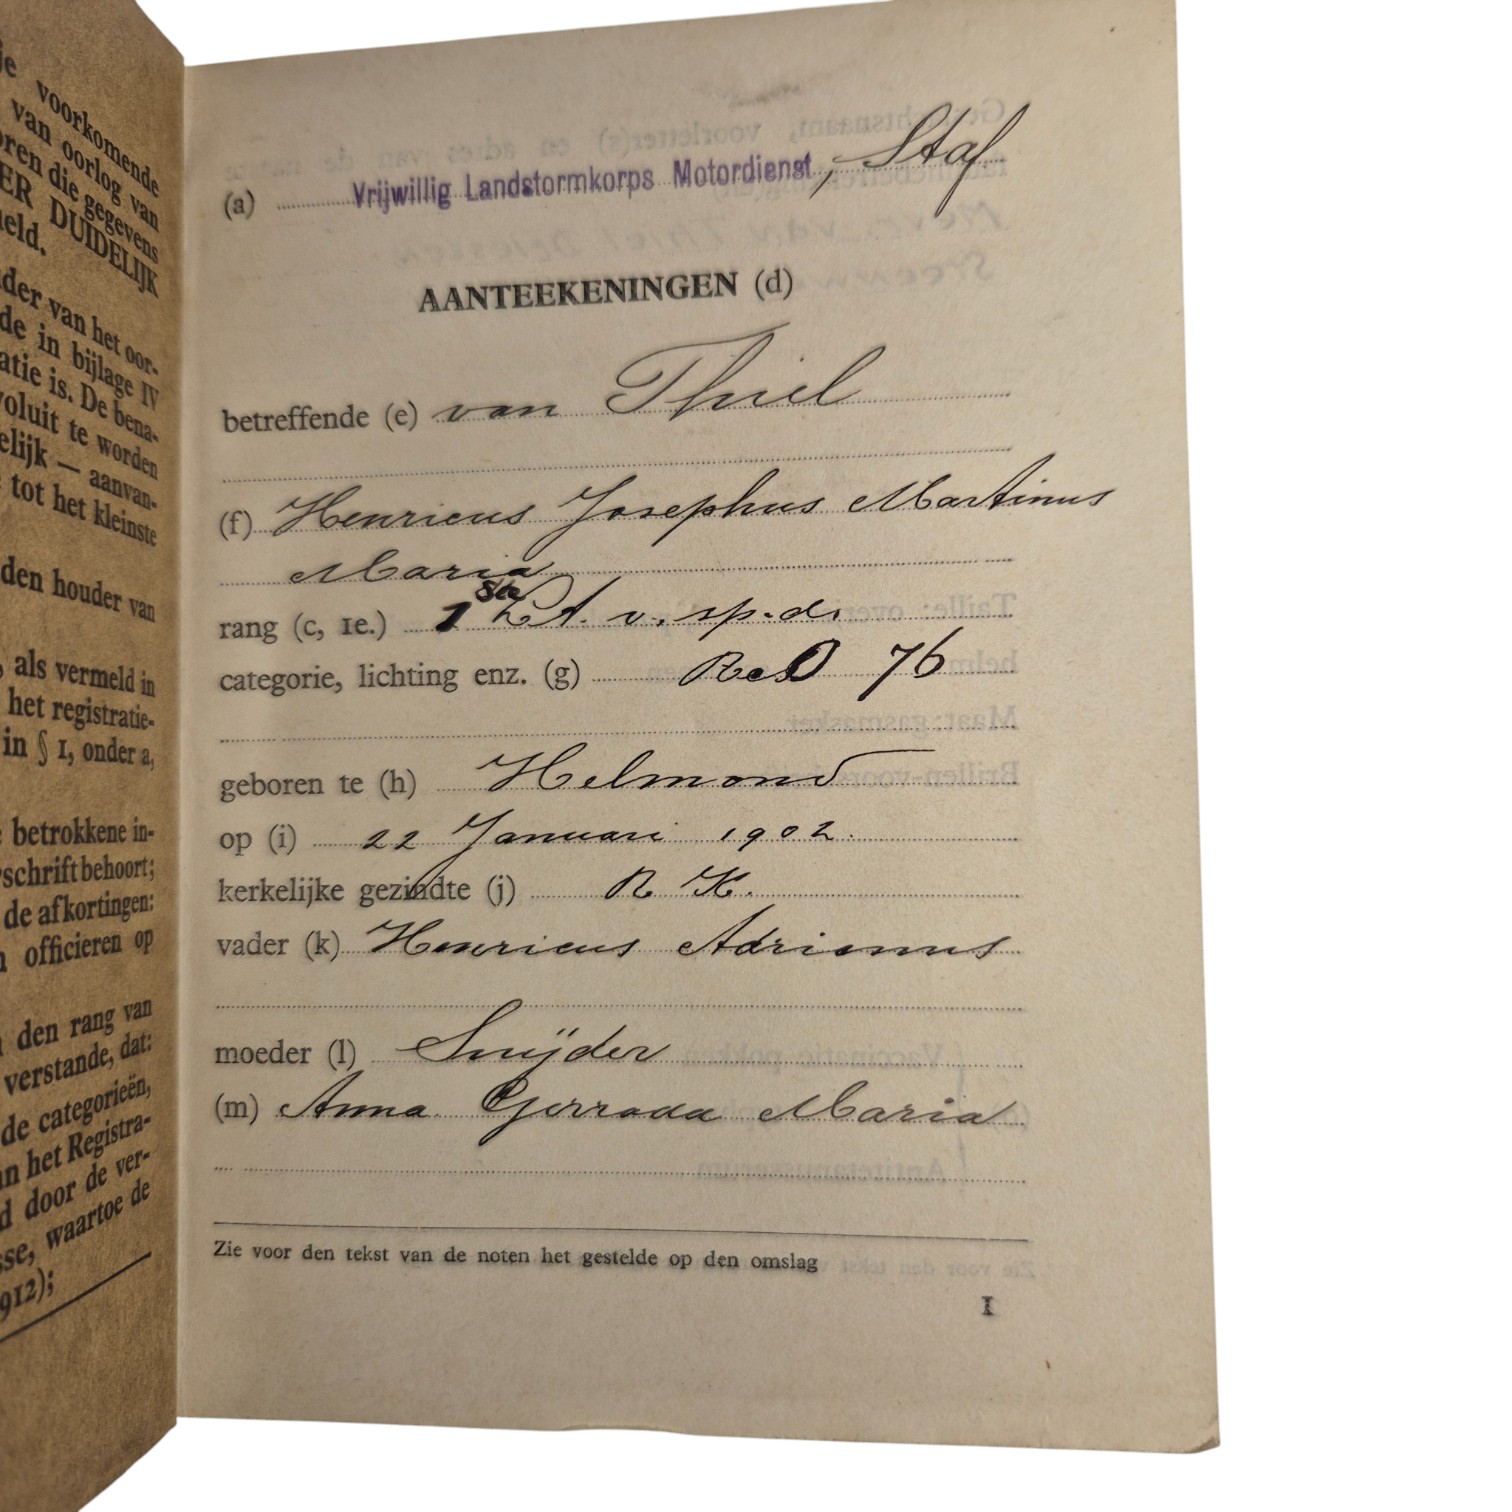 je voorkomende
van oorlog van
oren die gegevens
ER DUIDELIJK
ield.
der van het oor-
de in bijlage IV
atie is. De bena-
voluit te worden
elijk — aanvan-
tot het kleinste
den houder van
, als vermeld in
het registratie-
in § 1, onder a,
betrokkene in-
schrift behoort;
de afkortingen:
officieren op
den rang van
verstande, dat:
de categorieën,
an het Registra-
d door de ver-
sse, waartoe de
912);
(a) Vrijwillig Landstormkorps Motordienst, Staf
AANTEEKENINGEN (d)
betreffende (e) van Thiel
(f) Henricus Josephus Martinus
Maria
rang (c, 1e.) 1ste Lt. v. sp. d.
categorie, lichting enz. (g) ResO 76
geboren te (h) Helmond
op (i) 22 Januari 1902.
kerkelijke gezindte (j) R K.
vader (k) Henricus Adrianus
moeder (l) Snijder
(m) Anna Gerrada Maria
Zie voor den tekst van de noten het gestelde op den omslag
1